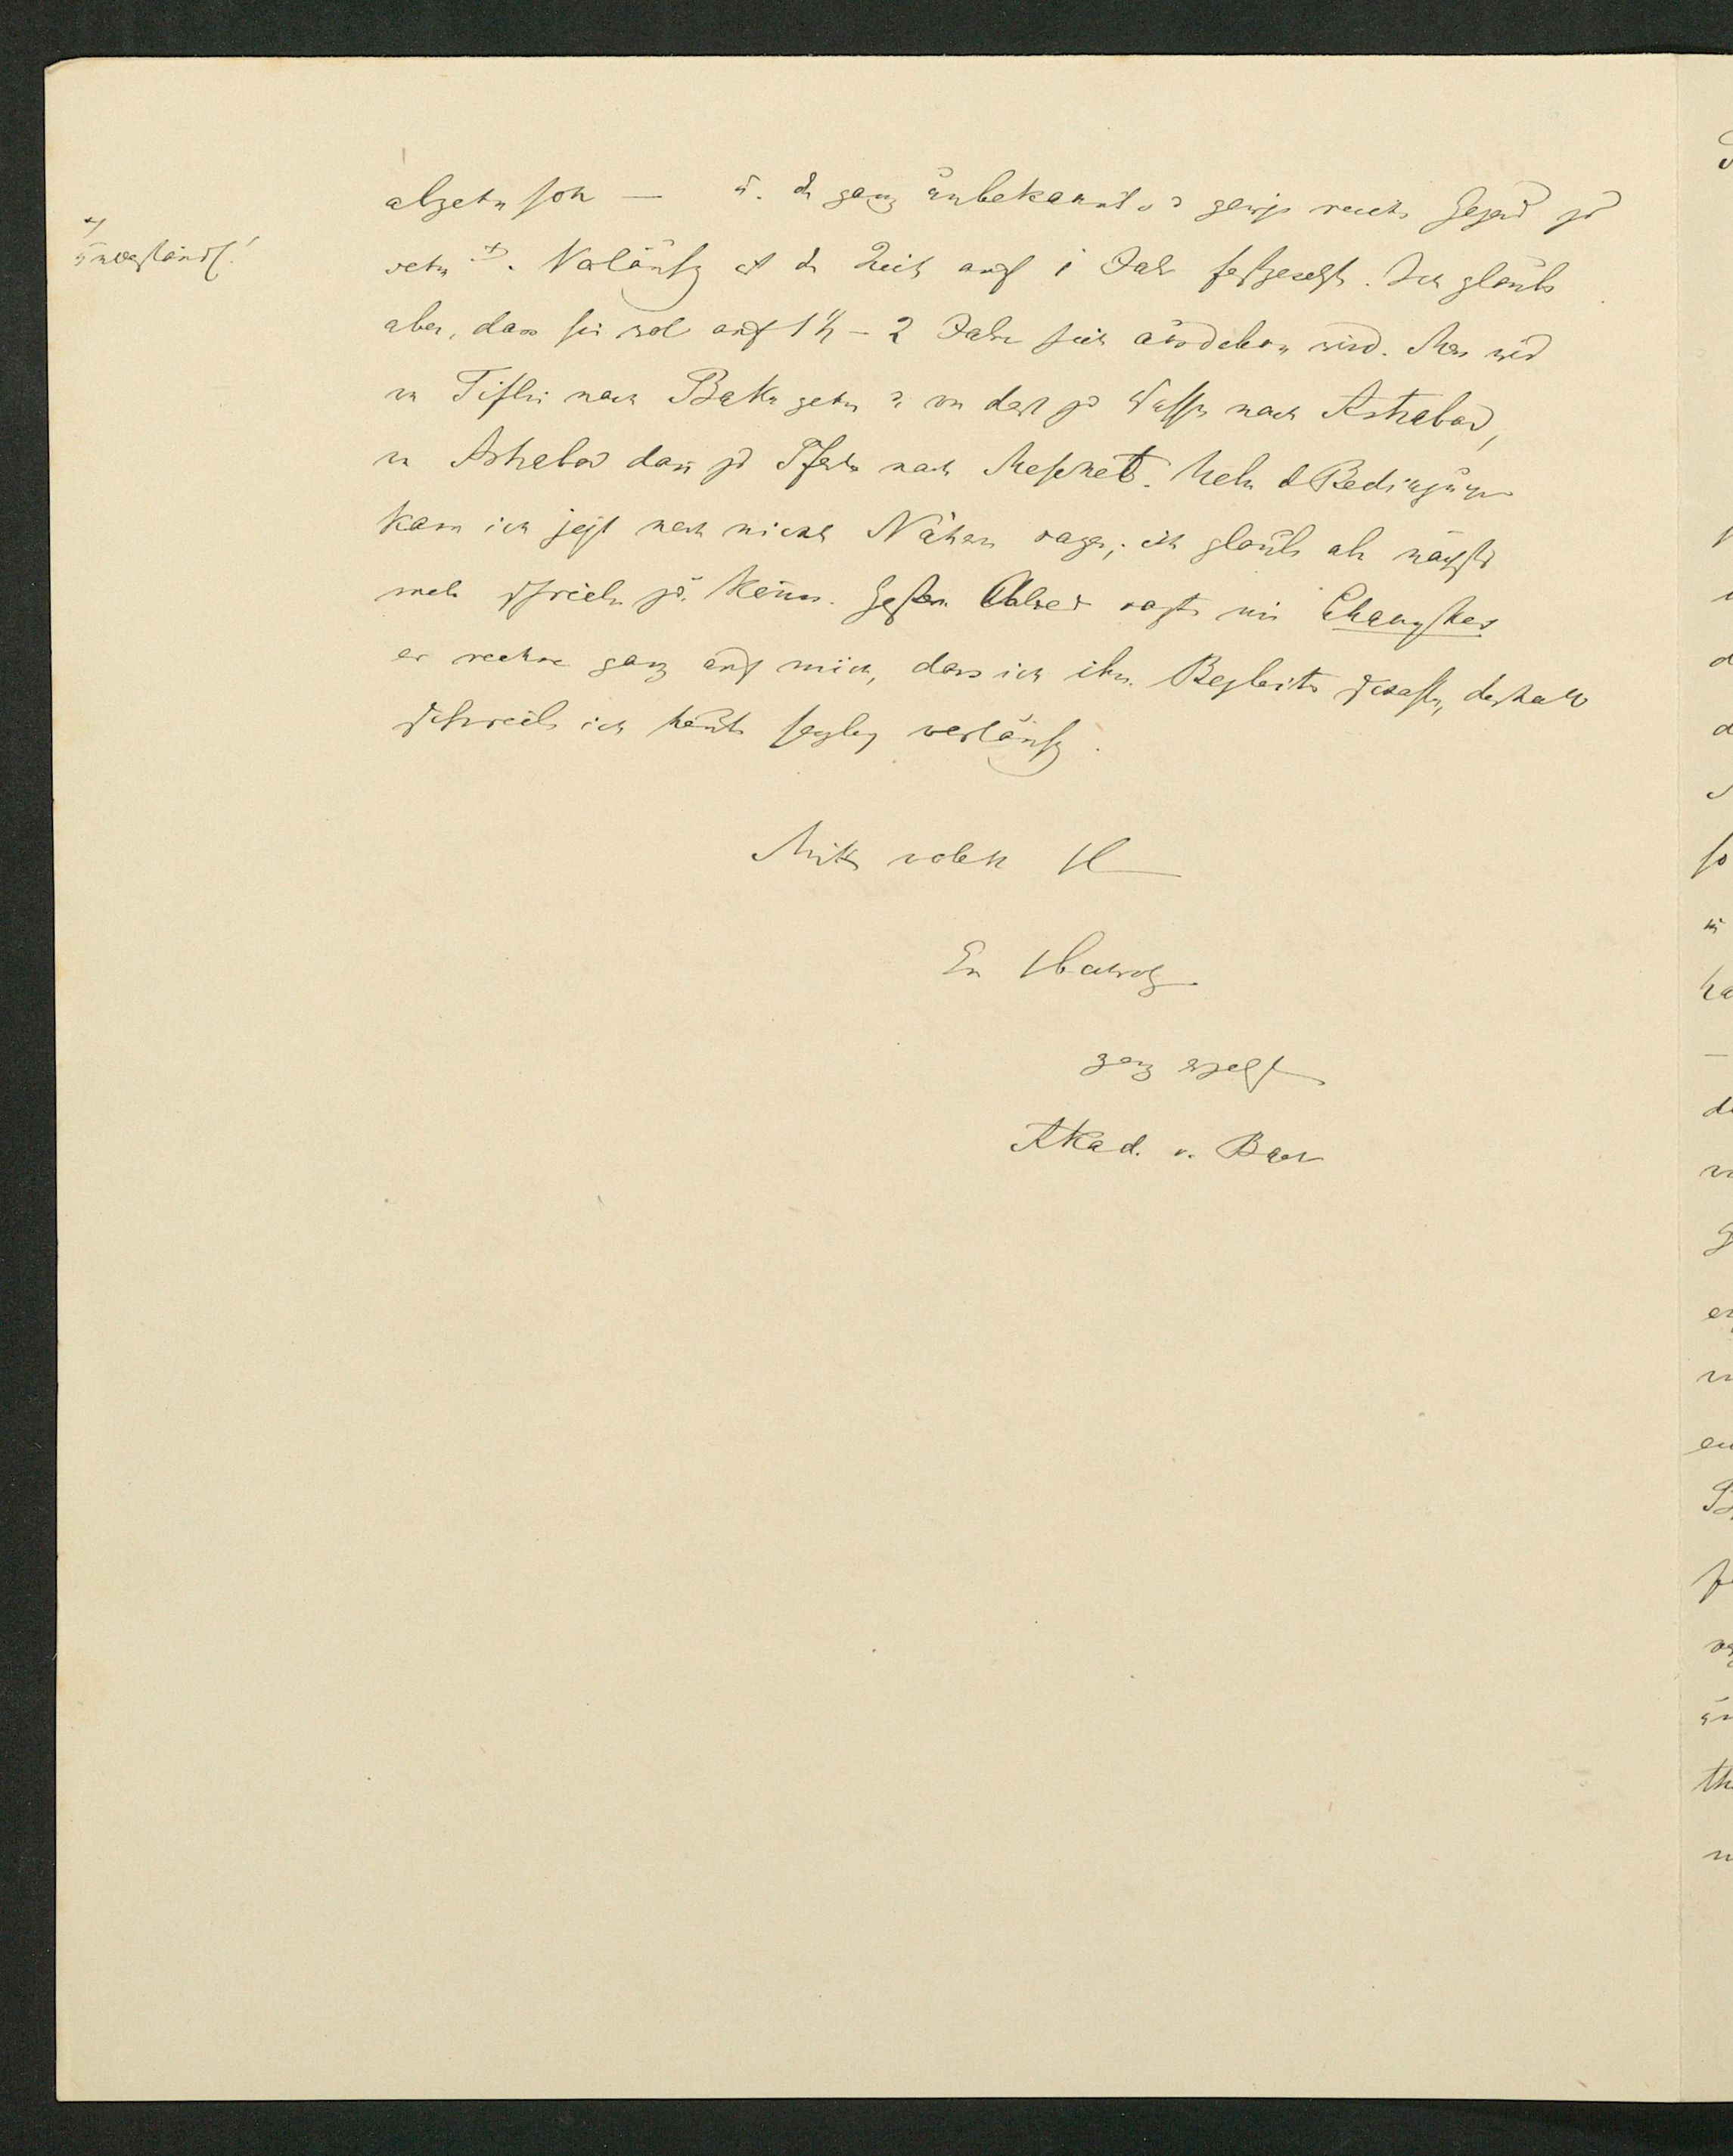 abgehn soll — u. die ganz unbekannte u. gewiss reiche Gegend zu
+) unverständl!
sehn +). Vorläufig ist die Zeit auf 1 Jahr festgesetzt. Ich glaube
aber, dass sie wol auf 1½ - 2 Jahre sich ausdehnen wird. Man wird
von Tiflis nach Baku gehn u. von dort zu Wasser nach Astrabad,
von Astrabad dann zu Pferde nach Meschhed. Bedingungen
kann ich jetzt noch nicht Näheres sagen; ich glaube aber nächstens
mehr schreiben zu können. Gestern Abend sagte mir Chanykov
er rechne ganz auf mich, dass ich ihm Begleiter schaffe, deshalb
schreibe ich heute vorläufig.
Mit
Ew
ganz
Akad. v. Baer